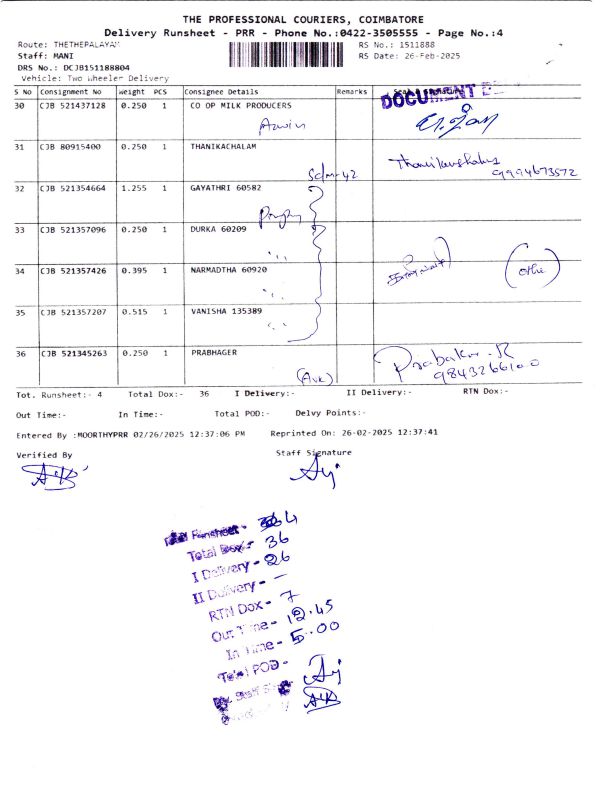 THE PROFESSIONAL COURIERS, COIMBATORE
Delivery Runsheet - PRR - Phone No.:0422-3505555 - Page No.:4
Route: THETHEPALAYAM RS No.: 1511888
Staff: MANI RS Date: 26-Feb-2025
DRS No.: DCJB151188804
Vehicle: Two Wheeler Delivery
S No Consignment No Weight PCS Consignee Details Remarks
DOCUMENT
30 CJB 521437128 0.250 1 CO OP MILK PRODUCERS
31 CJB 80915400 0.250 1 THANIKACHALAM
9994673572
32 CJB 521354664 1.255 1 GAYATHRI 60582
33 CJB 521357096 0.250 1 DURKA 60209
34 CJB 521357426 0.395 1 NARMADTHA 60920
35 CJB 521357207 0.515 1 VANISHA 135389
36 CJB 521345263 0.250 1 PRABHAGER
Prabakar.R
9843266100
Tot. Runsheet:- 4 Total Dox:- 36 I Delivery:- II Delivery:- RTN Dox:-
Out Time:- In Time:- Total POD:- Delvy Points:-
Entered By :MOORTHYPRR 02/26/2025 12:37:06 PM Reprinted On: 26-02-2025 12:37:41
Verified By Staff Signature
Runsheet - 4
Total Dox:- 36
I Delivery - 26
II Delivery - -
RTN Dox - 7
Out Time - 12.45
In Time - 5.00
Total POD -